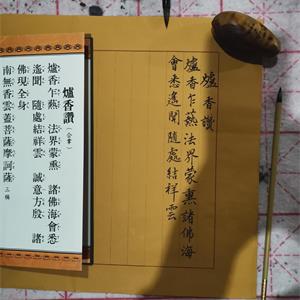 爐香讚
爐香乍爇法界蒙熏諸佛海
會悉遙聞隨處結祥雲
爐香讚（合掌）
爐香乍爇 法界蒙熏 諸佛海會悉
遙聞 隨處結祥雲 誠意方殷 諸
佛現全身
南無香雲蓋菩薩摩訶薩 三稱